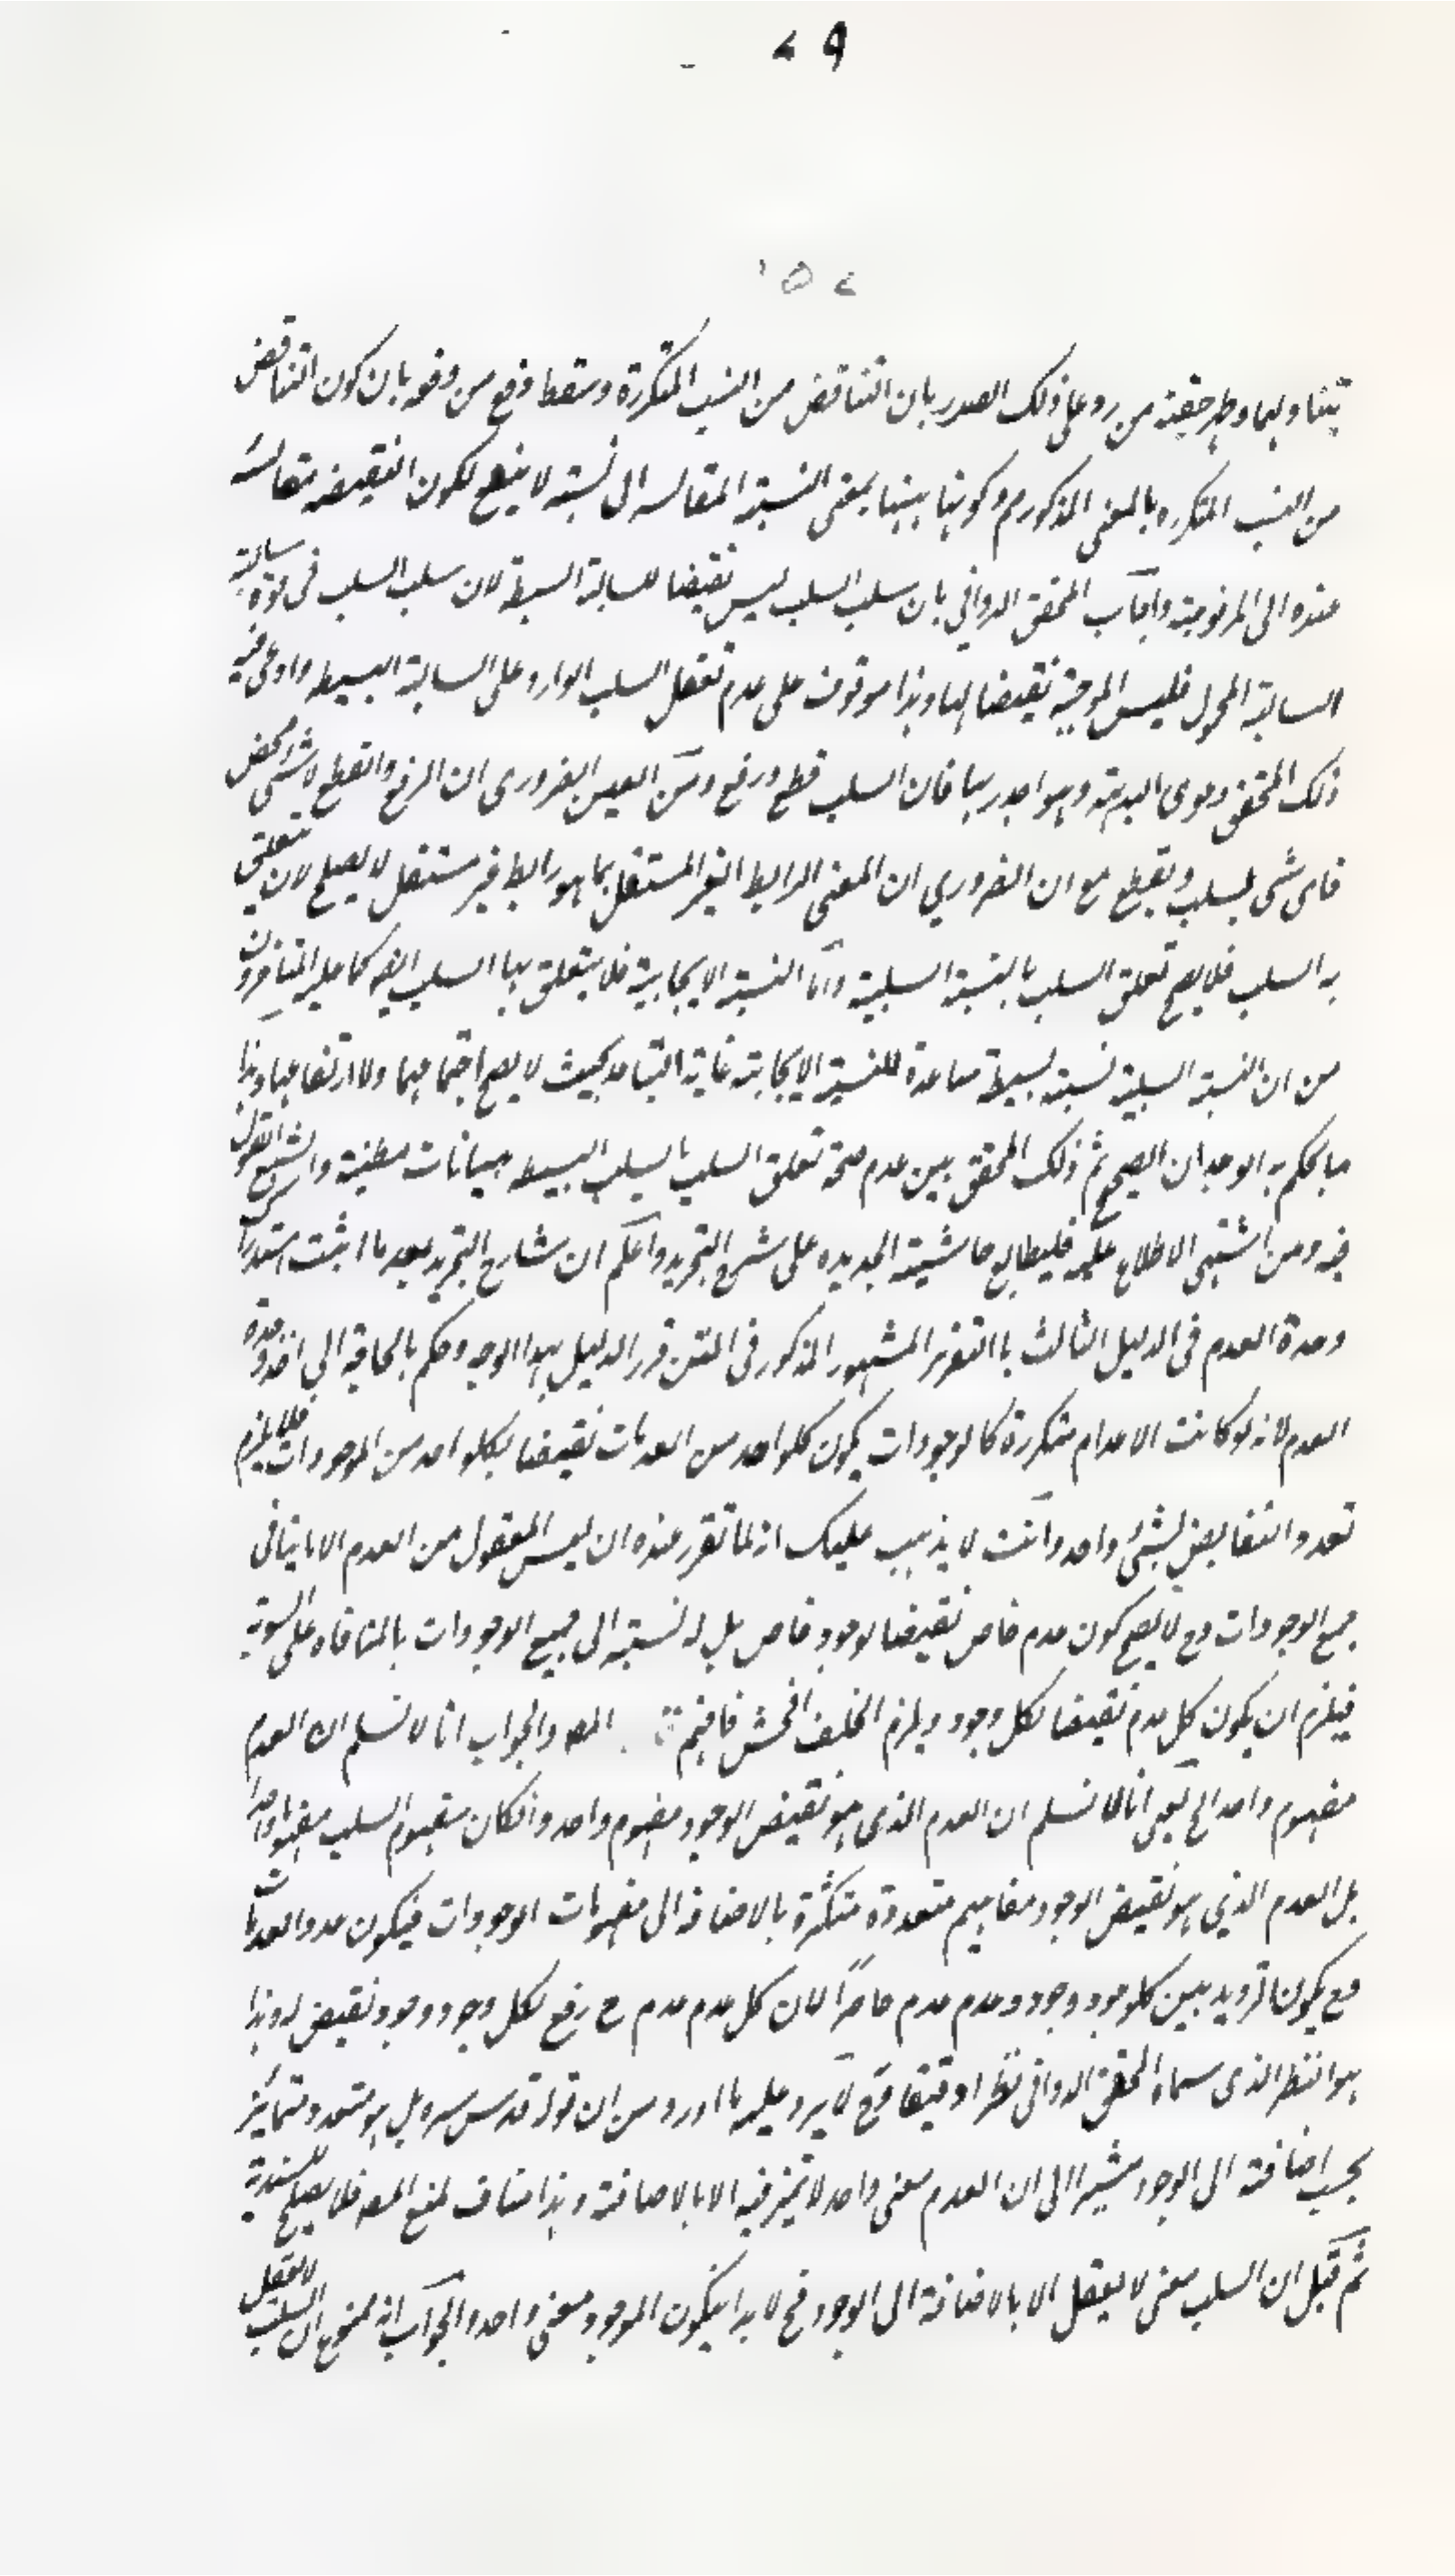 ٤٩
١٥٤
من رد على ذلك الصدر بان التناقض من النسب المتكررة وسقط دفع من دفعه بان كون التناقض
من النسب المتكرره بالمعنى المذكور مم وكونها بينها بمعنى النسبة المقالسه الى نسبة لا ينفع لكون النقيضه مقالسة
عنده الى المرفوعية واجاب المحقق الدواني بان سلب السلب ليس نقيضا للسالبة البسيطة لان سلب السلب في قوة سالبة
السالبة المحمول فليس الموجبة نقيضا لها وهذا موقوف على عدم تعقل السلب الوارد على السالبة البسيطه وادعى فيه
ذلك المحقق دعوى البديهة وهو اجدر بها فان السلب قطع ورفع ومن البين الضرورى ان الرفع والقطع لا شئ محض
فاى شئ يسلب ويقطع مع ان الضروري ان المعنى الرابط الغير المستقل بما هو رابط غير مستقل لا يصلح لان يتعلق
به السلب فلا يصح تعلق السلب بالنسبة السلبية واما النسبة الايجابية فلا يتعلق بها السلب ايضا كما عليه المتاخرون
من ان النسبة السلبية نسبة بسيطة مباعدة للنسبة الايجابية غاية التباعد بحيث لا يصح اجتماعهما ولا ارتفاعهما وهذا
مما يحكم به الوجدان الصحيح ثم ذلك المحقق بين عدم صحة تعلق السلب بالسلب البسيط ببيانات مطنبة واشبع القول
فيه ومن اشتهى الاطلاع عليه فليطالع حاشيته الجديده على شرح التجريد واعلم ان شارح التجريد بعد ما اثبت استدراك
وحدة العدم في الدليل الثالث بالتقرير المشهور المذكور في المتن قرر الدليل بهذا الوجه وحكم بالحاجة الى اخذ وحدة
العدم لانه لو كانت الاعدام متكررة كالوجودات يكون كلواحد من العدمات نقيضا لكلواحد من الموجودات فلا يلزم
تعدد النقايض لشئ واحد وانت لا يذهب عليك انه لما تقرر عنده ان ليس المعقول من العدم الا ما ينافى
جميع الوجودات فح لا يصح كون عدم خاص نقيضا لوجود خاص بل له نسبة الى جميع الوجودات بالمنافاه على السوية
فيلزم ان يكون كل عدم نقيضا لكل وجود ويلزم الخلف افحش فافهم المصه والجواب انا لا نسلم ان العدم
مفهوم واحد الخ يعنى انا لا نسلم ان العدم الذى هو نقيض الوجود مفهوم واحد وانكان مفهوم السلب مفهوما واحدا
بل العدم الذي هو نقيض الوجود مفاهيم متعددة متكثرة بالاضافة الى مفهومات الوجودات فيكون عدد العدمات
فح يكون الترديد بين كلوجود وجود وعدم عدم حاصرا لان كل عدم عدم ح رفع لكل وجود وجود نقيض له وهذا
هو النظر الذى سماه المحقق الدوانى نظرا دقيقا فح لا يرد عليه ما اورد من ان قوله قدس سره بل هو متعدد متمايز
بحسب اضافته الى الوجود مشيرا الى ان العدم معنى واحد لا تميز فيه الا بالاضافة وهذا مناف لمنع المصه فلا يصلح للسندية
ثم قيل ان السلب معنى لا يعقل الا بالاضافة الى الوجود فح لا بد ان يكون الوجود معنى واحد والجواب انه ممنوع ان السلب لا يعقل